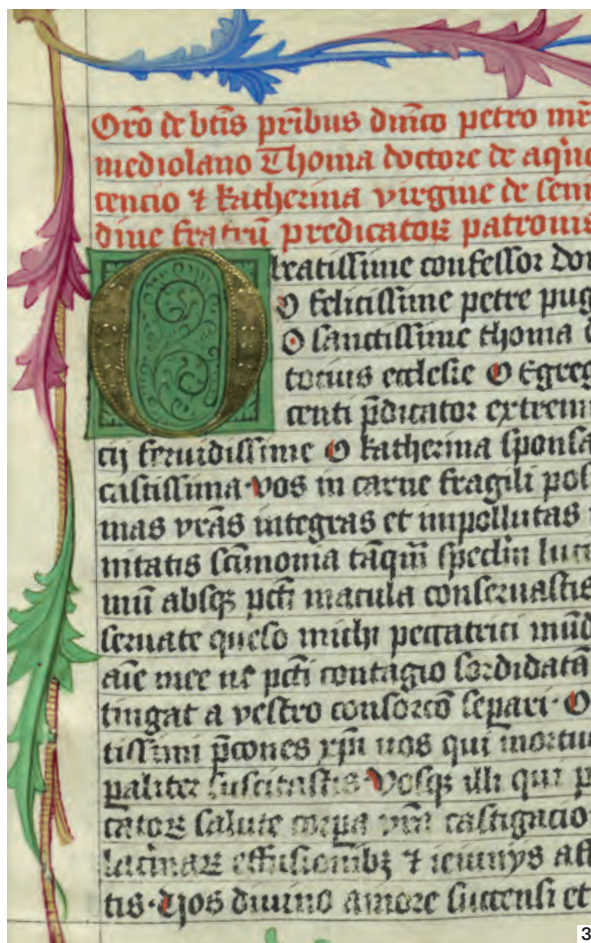 Orō de btīs pribus dinīco petro mr̄
mediolano Thoma doctore de aqūe
cencio ⁊ katherina virgine de sen
dine fratrū predicatoꝝ patronis
Oratissime confessor don
O felicissime petre pug
O sanctissime thoma d
tocius ecclesie O Egreg
centi p̄dicator extremi
cij feruidissime O katherina sponsa
castissima vos in carne fragili pos
mas vrās integras et impollutas
nitatis scīmonia tāqm̄ specīm luci
mū absqꝫ pctī macula conseruastis
seruate queso michi peccatrici mūd
aīe mee ne pctī contagio sordidatā
tingat a vestro consorcō separi· O
tissimi p̄cones xp̄i uos qui mortu
paliter suscitastis Vosqꝫ illi qui p
catoꝝ salute corpa vrā castigacio
lacrimaꝝ effusionibꝫ ⁊ ieiunijs aff
tis· Uos diuino amore succensi et
3